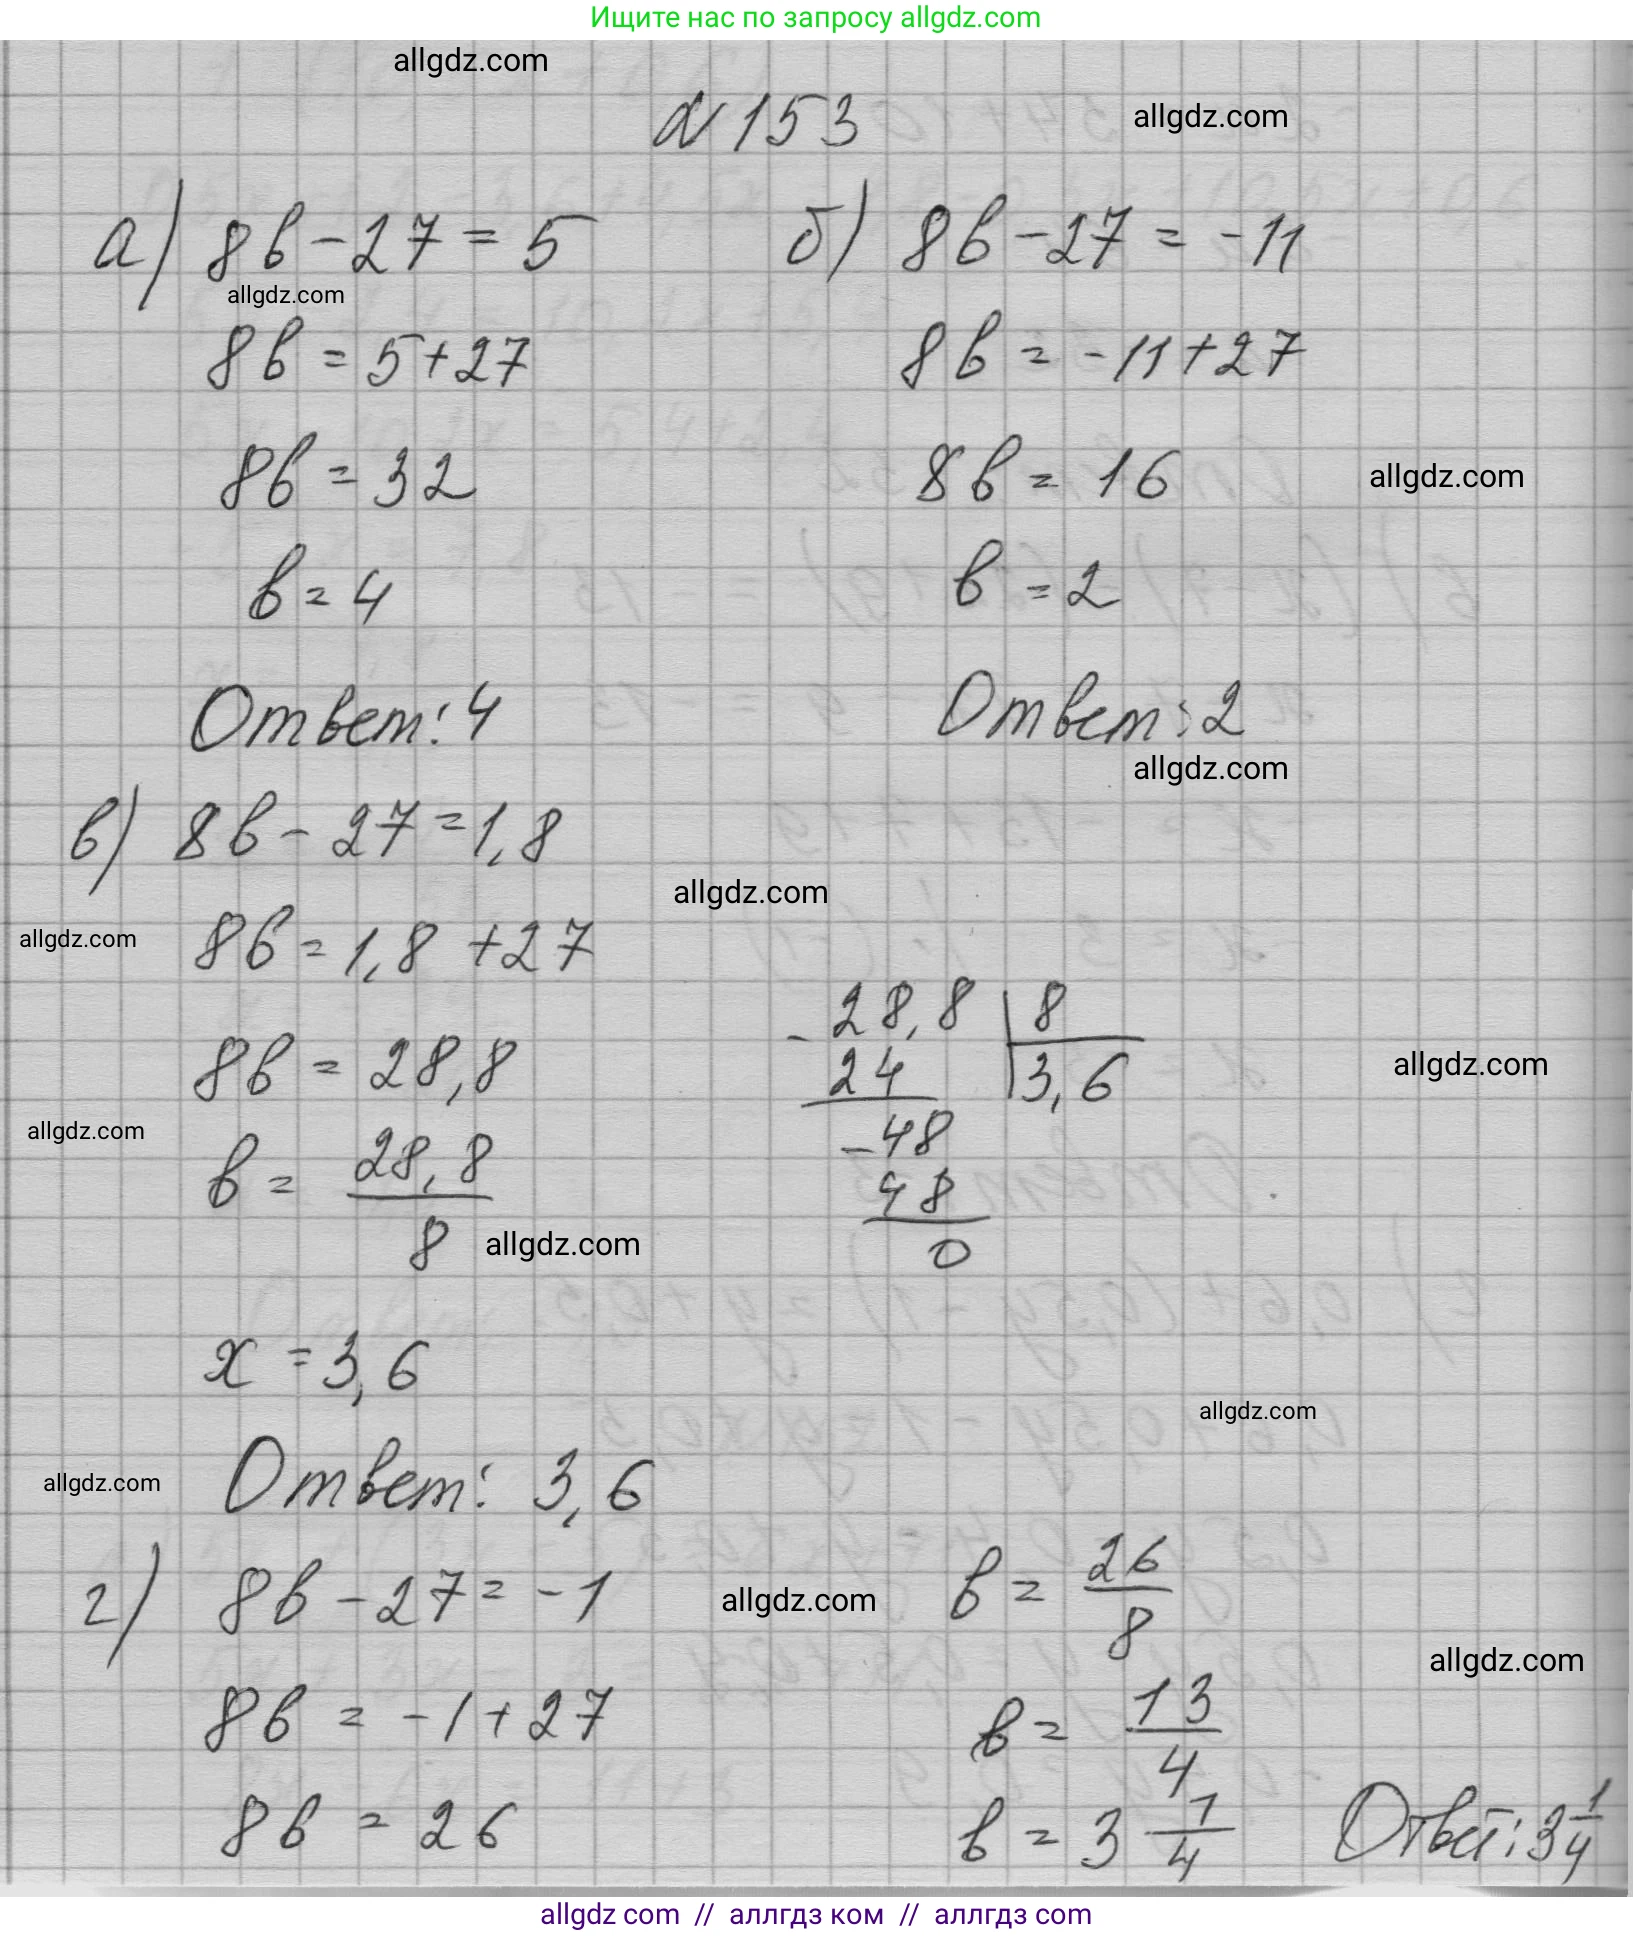 Ищите нас по запросу allgdz.com
allgdz.com
N 153
allgdz.com
а) 8b - 27 = 5
б) 8b - 27 = -11
allgdz.com
8b = 5 + 27
8b = -11 + 27
8b = 32
8b = 16
allgdz.com
b = 4
b = 2
Ответ: 4
Ответ: 2
allgdz.com
в) 8b - 27 = 1,8
allgdz.com
8b = 1,8 + 27
allgdz.com
- 28,8 | 8
8b = 28,8
24 | 3,6
allgdz.com
allgdz.com
- 48
b = 28,8 / 8
48
0
allgdz.com
x = 3,6
allgdz.com
Ответ: 3,6
allgdz.com
г) 8b - 27 = -1
allgdz.com
b = 26 / 8
allgdz.com
8b = -1 + 27
b = 13 / 4
8b = 26
b = 3 1/4
Ответ: 3 1/4
allgdz com // аллгдз ком // аллгдз com